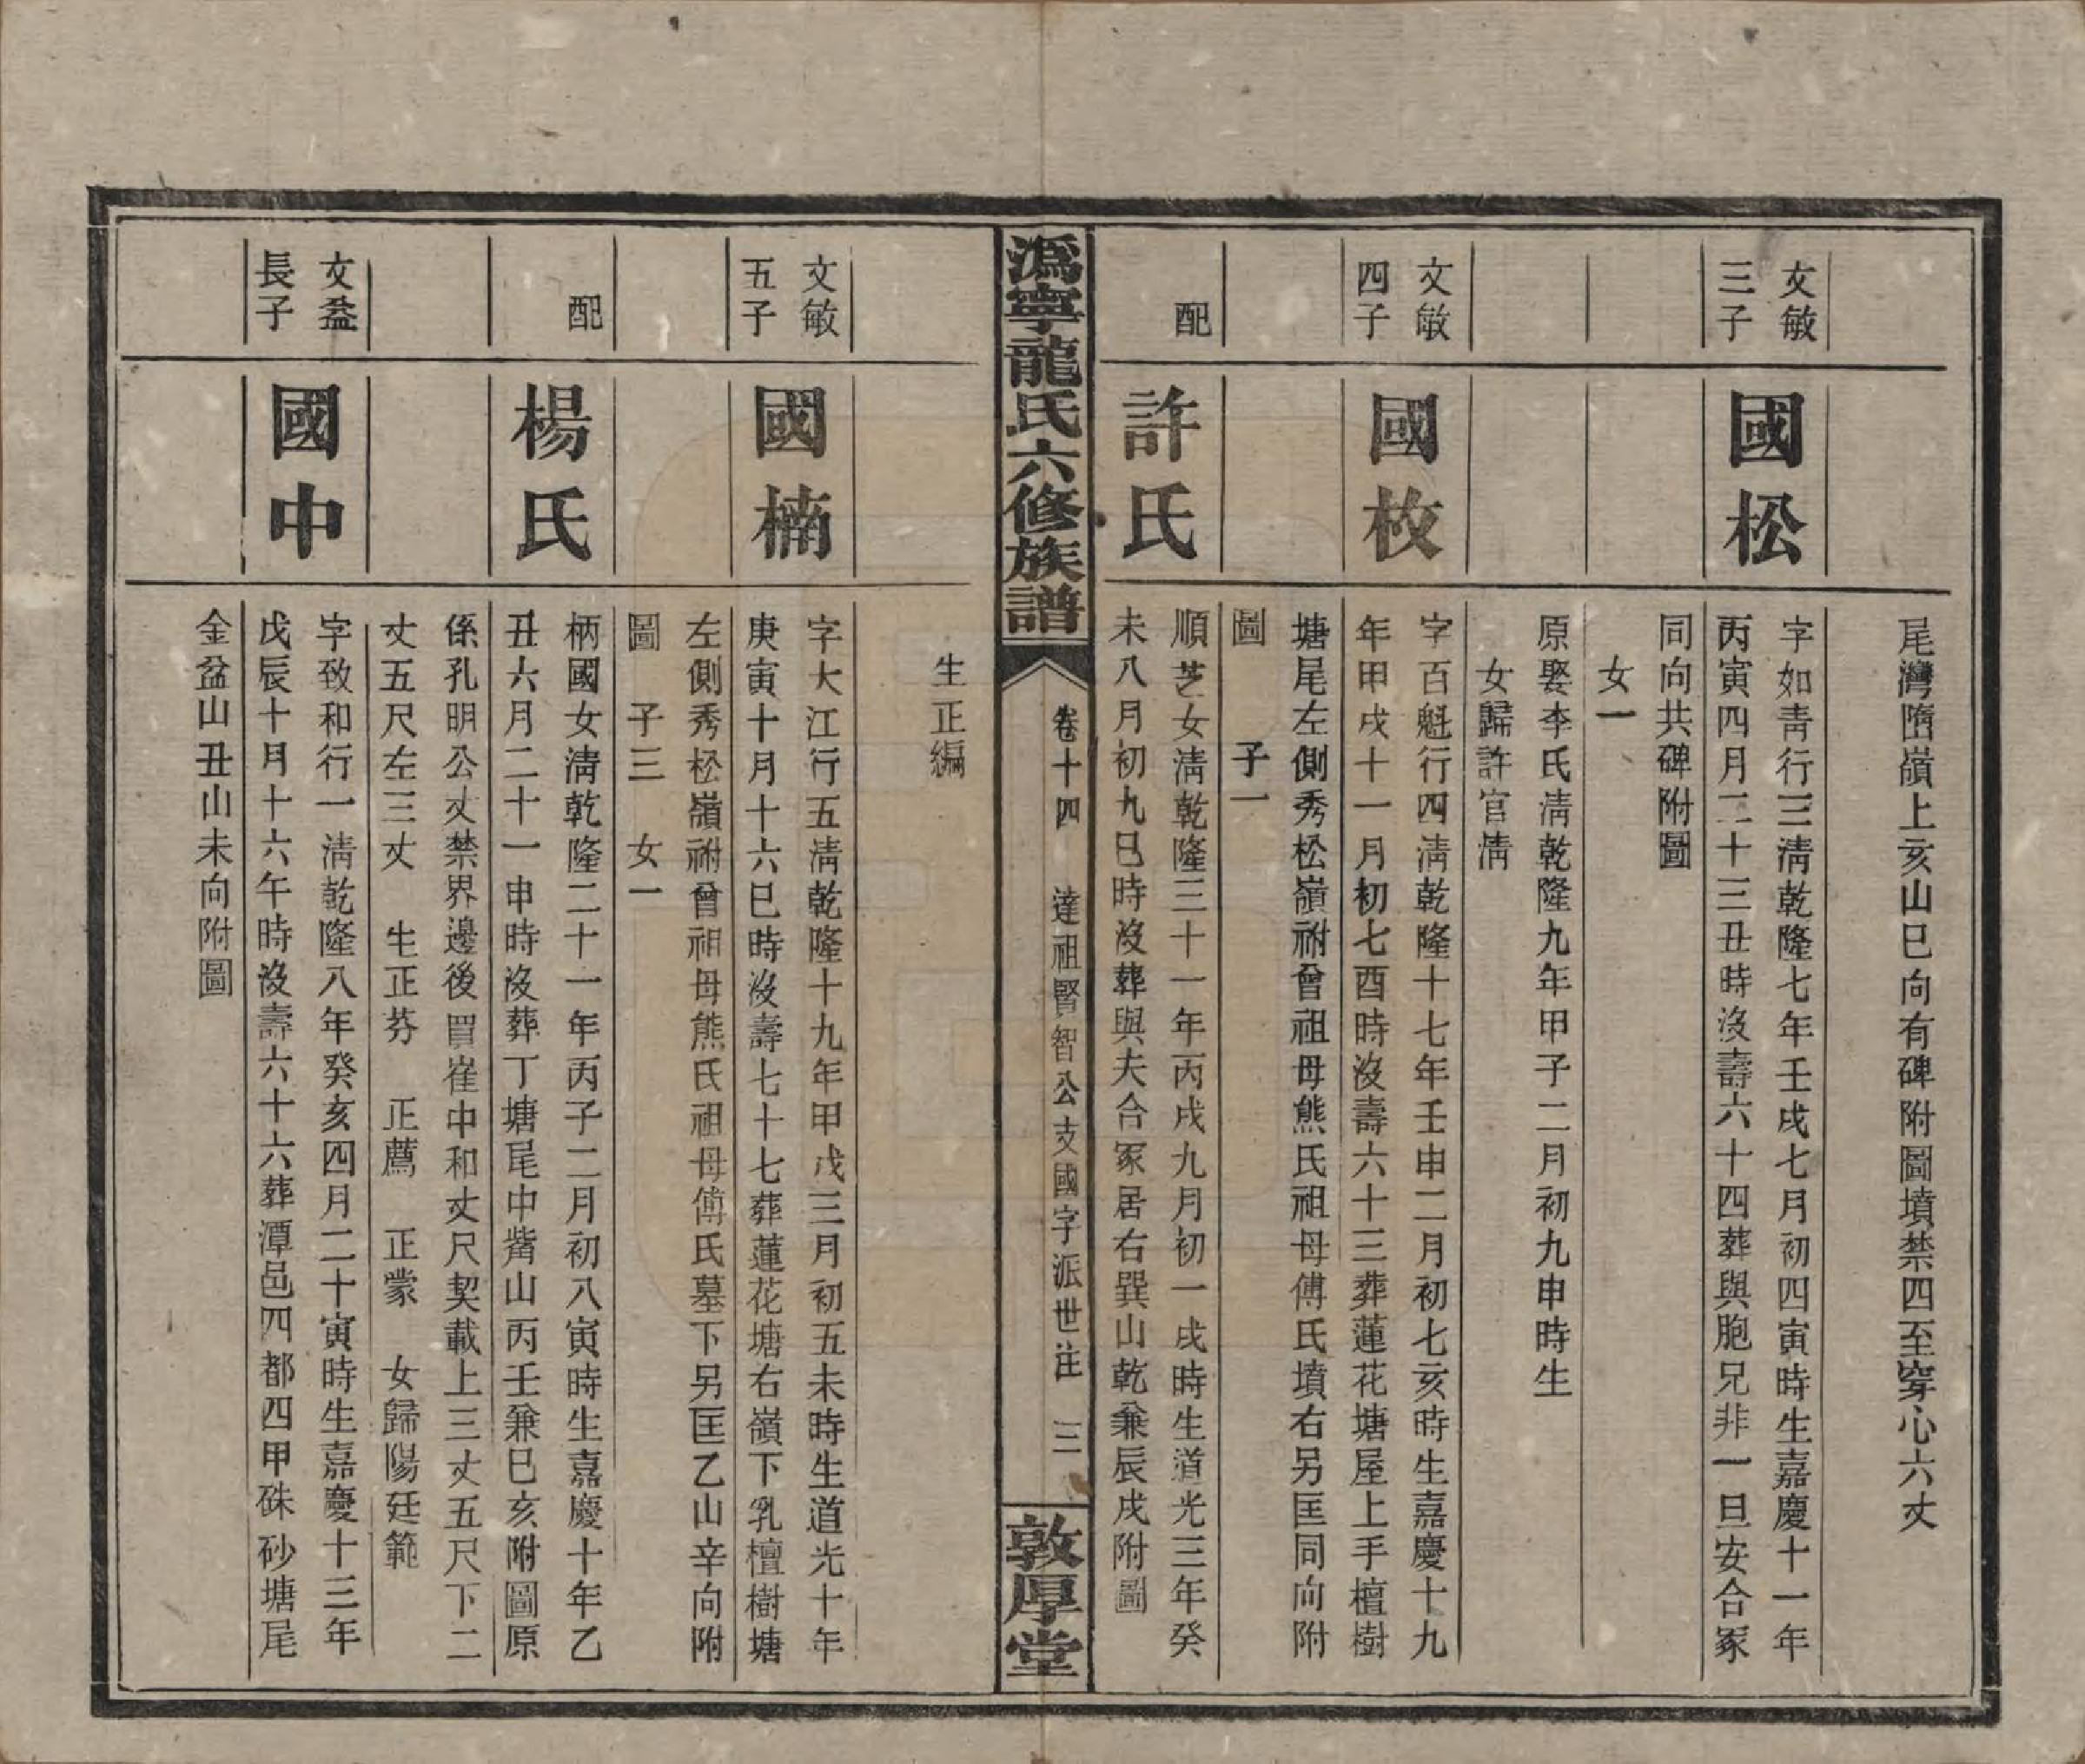 尾灣墮嶺上亥山巳向有碑附圖墳禁四至穿心六丈
文敏
三子
國松
字如青行三清乾隆七年壬戌七月初四寅時生嘉慶十一年
丙寅四月二十三丑時沒壽六十四葬與胞兄非一旦安合冢
同向共碑附圖
女一
原娶李氏清乾隆九年甲子二月初九申時生
女歸許官清
文敏
四子
國枚
字百魁行四清乾隆十七年壬申二月初七亥時生嘉慶十九
年甲戌十一月初七酉時沒壽六十三葬蓮花塘屋上手檀樹
塘尾左側秀松嶺祔曾祖母熊氏祖母傅氏墳右另匡同向附
圖　子一
配
許氏
順芝女清乾隆三十一年丙戌九月初一戌時生道光三年癸
未八月初九巳時沒葬與夫合冢居右巽山乾兼辰戌附圖
溈寧龍氏六修族譜
卷十四　達祖賢智公支國字派世注　三
敦厚堂
生正編
文敏
五子
國楠
字大江行五清乾隆十九年甲戌三月初五未時生道光十年
庚寅十月十六巳時沒壽七十七葬蓮花塘右嶺下乳檀樹塘
左側秀松嶺祔曾祖母熊氏祖母傅氏墓下另匡乙山辛向附
圖　子三　女一
配
楊氏
柄國女清乾隆二十一年丙子二月初八寅時生嘉慶十年乙
丑六月二十一申時沒葬丁塘尾中觜山丙壬兼巳亥附圖原
係孔明公丈禁界邊後買崔中和丈尺契載上三丈五尺下二
丈五尺左三丈　生正芬　正薦　正蒙　女歸陽廷範
文益
長子
國中
字致和行一清乾隆八年癸亥四月二十寅時生嘉慶十三年
戊辰十月十六午時沒壽六十六葬潭邑四都四甲硃砂塘尾
金盆山丑山未向附圖